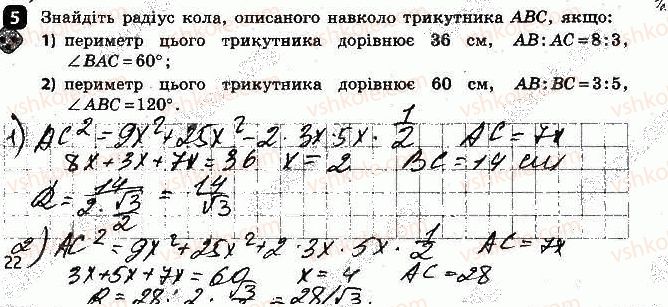 5 Знайдіть радіус кола, описаного навколо трикутника ABC, якщо:
1) периметр цього трикутника дорівнює 36 см, AB:AC=8:3,
∠BAC=60°;
2) периметр цього трикутника дорівнює 60 см, AB:BC=3:5,
∠ABC=120°.
1) AC²=9x²+25x²-2·3x·5x·1/2 AC=7x
8x+3x+7x=36 x=2 BC=14 см
R=14/(2·√3/2)=14/√3
2) AC²=9x²+25x²+2·3x·5x·1/2 AC=7x
22
3x+5x+7x=60 x=4 AC=28
R=28:2·√3/2=28/√3.